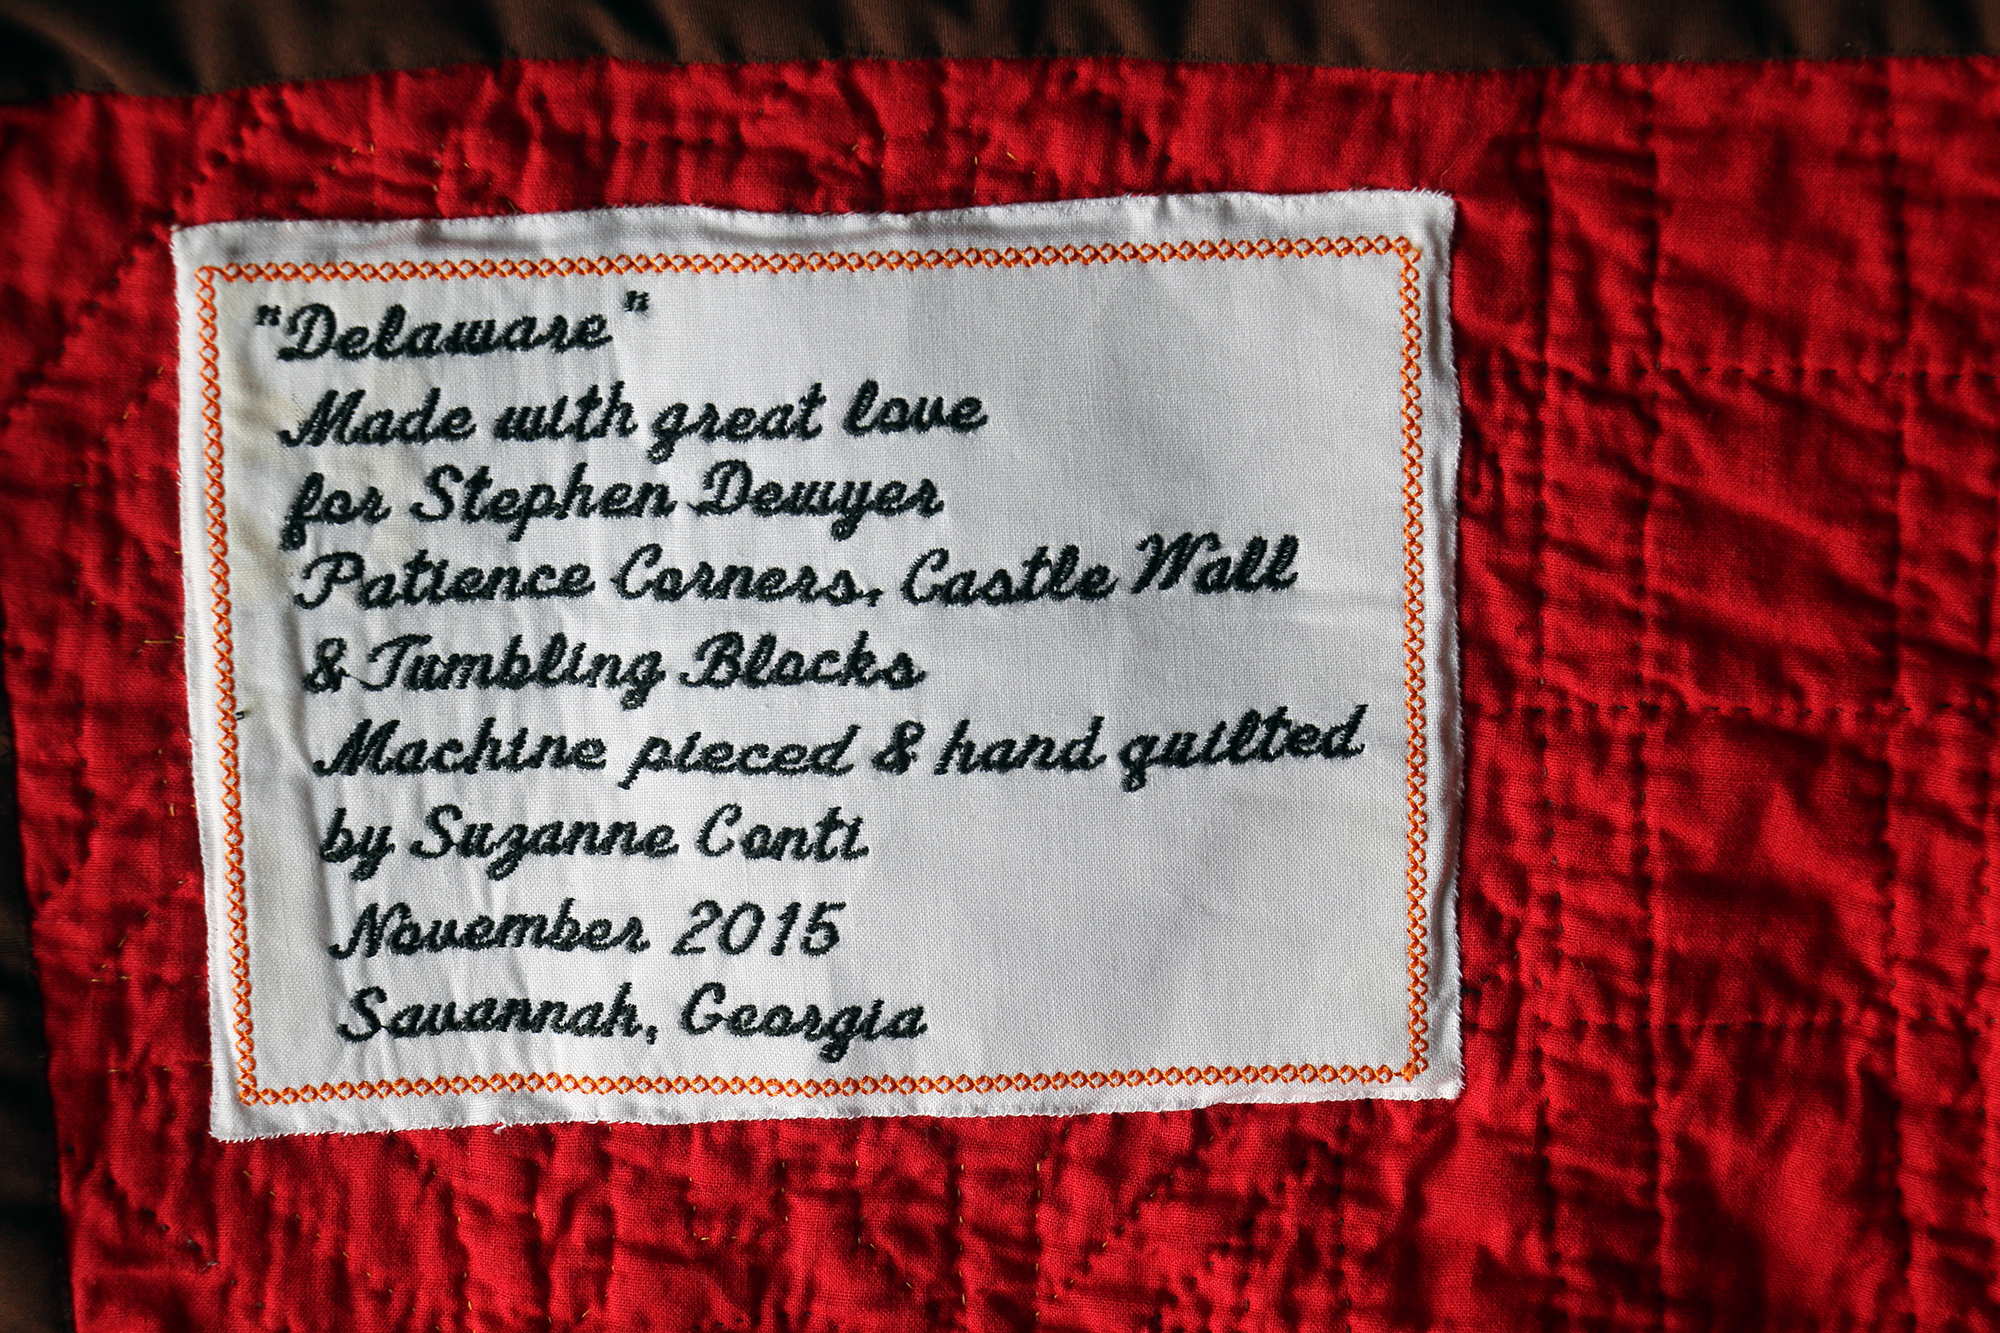 "Delaware"
Made with great love
for Stephen Dewyer
Patience Corners, Castle Wall
& Tumbling Blocks
Machine pieced & hand quilted
by Suzanne Conti
November 2015
Savannah, Georgia